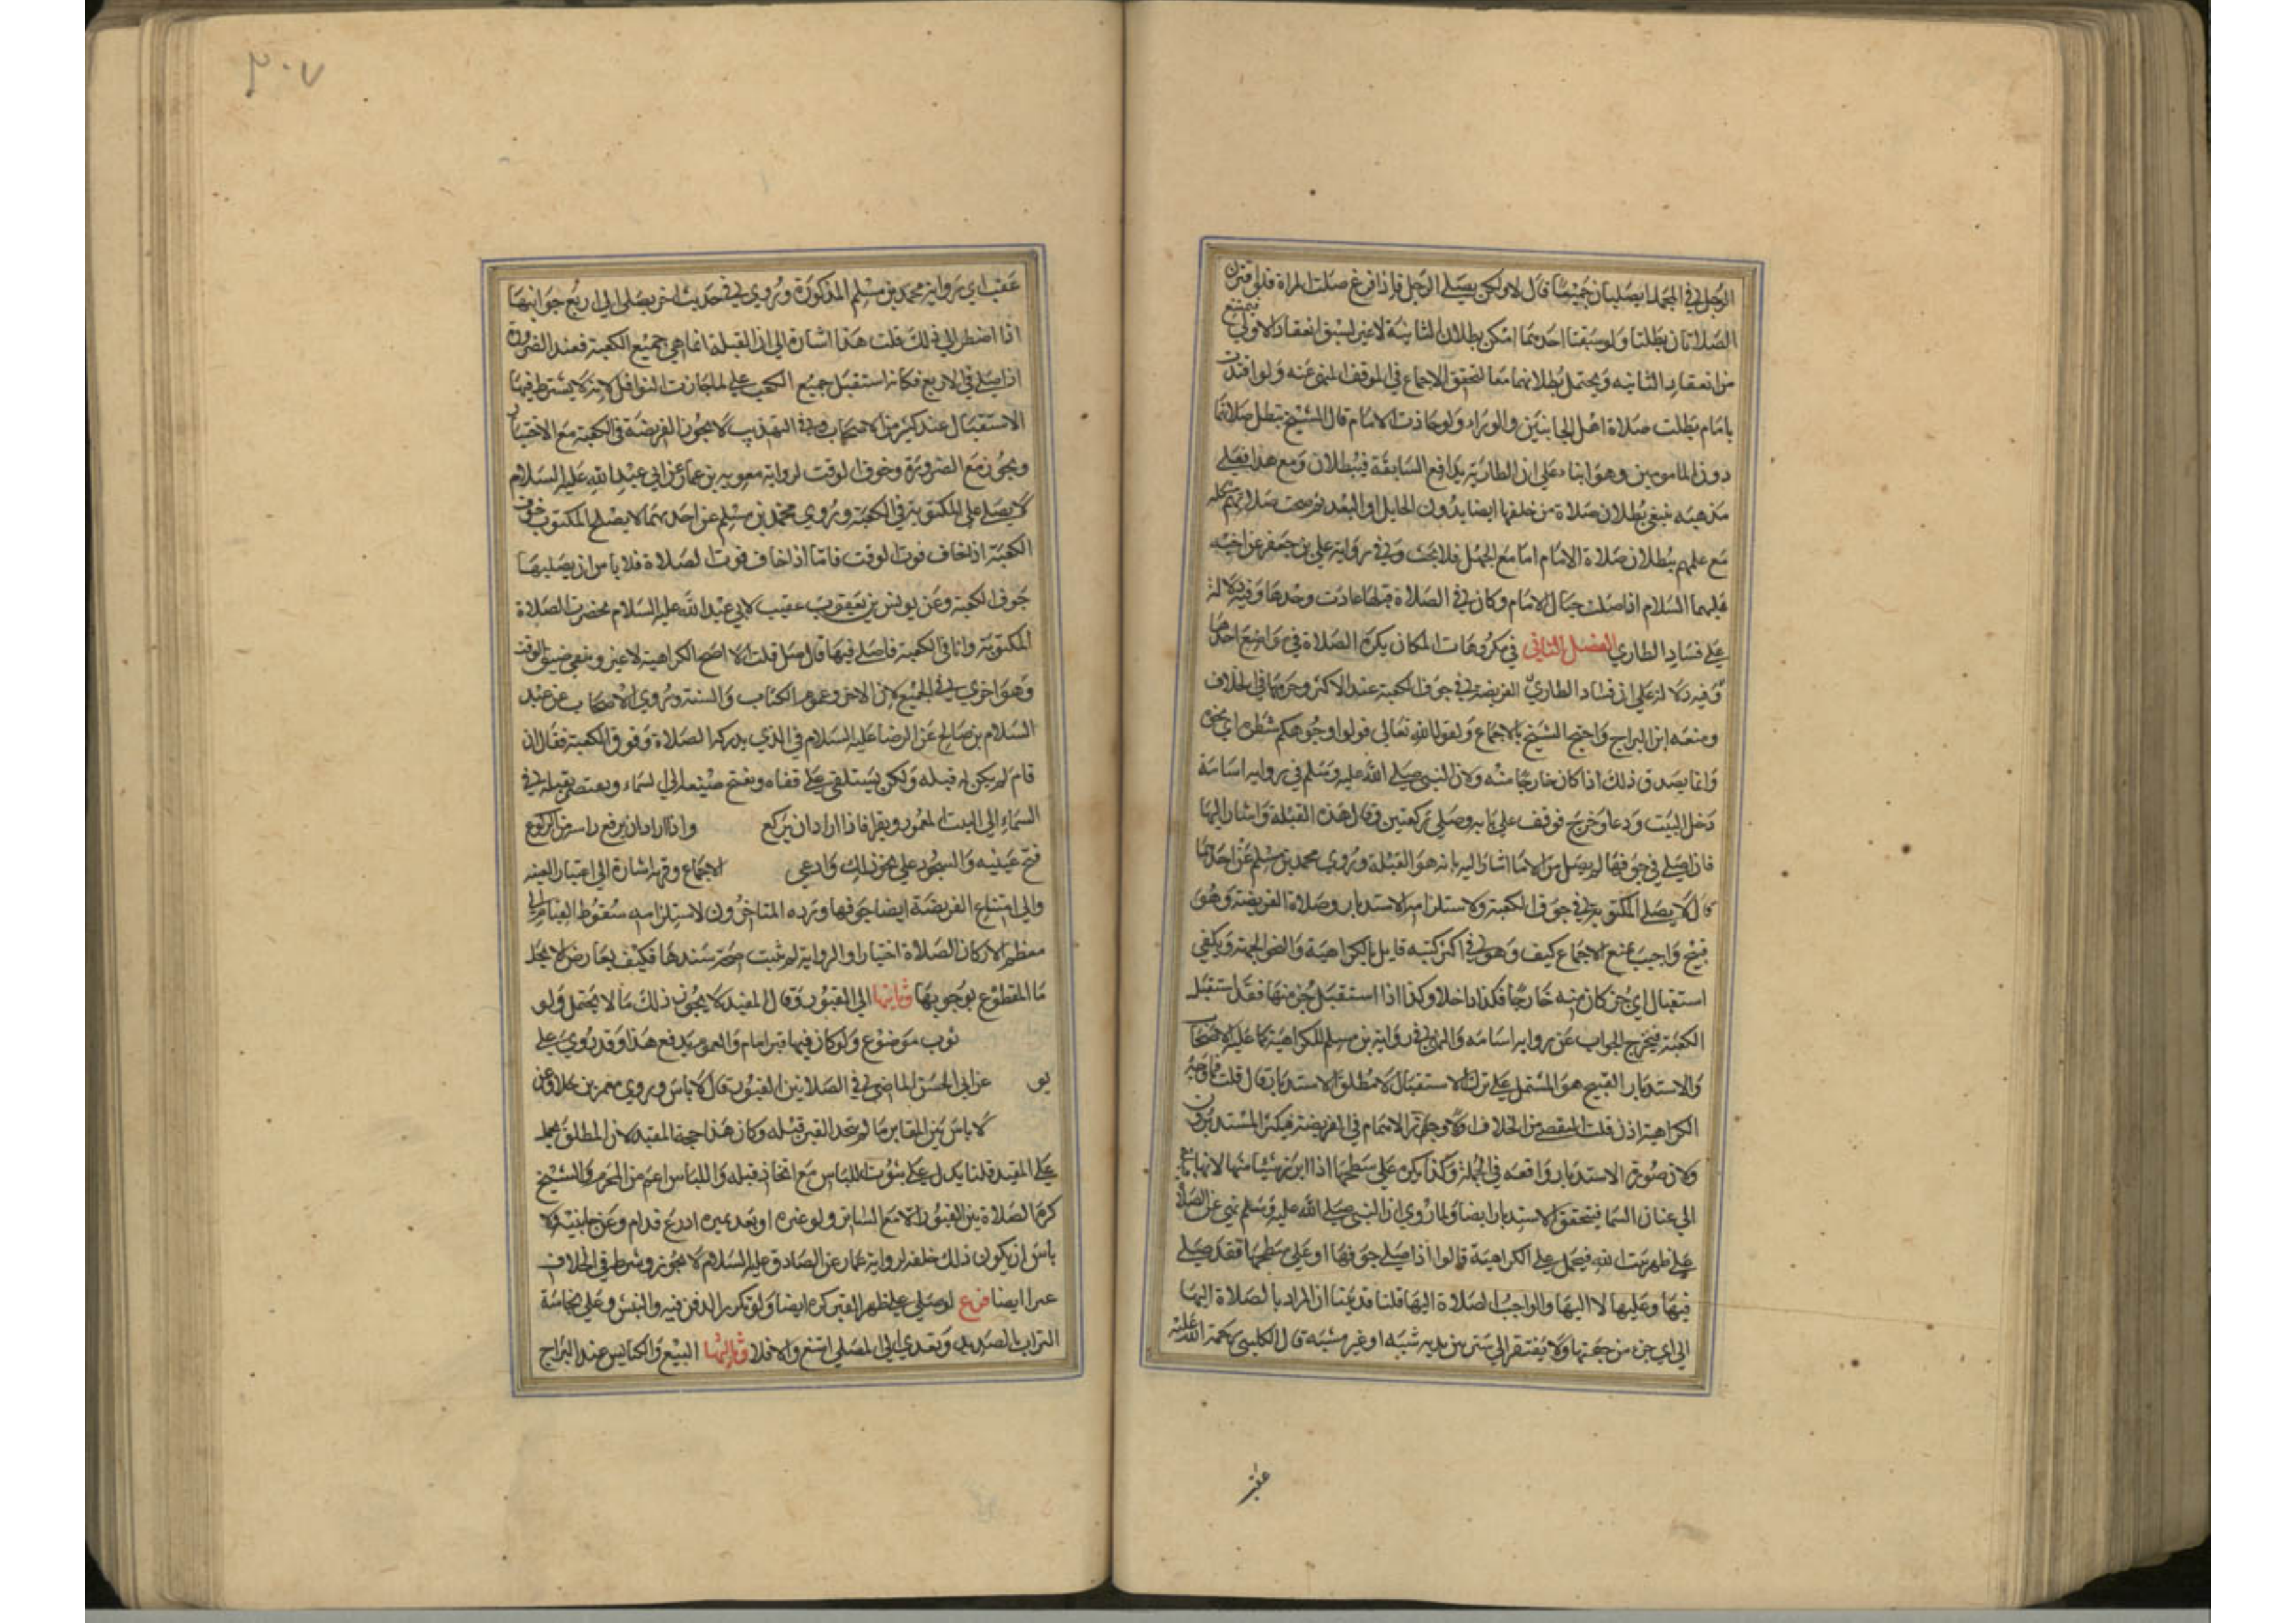 الرجل في المحمل ايصليان جميعا قال لا ولكن يصلي الرجل فاذا فرغ صلت المراة فلو اقترن
الصلاتان بطلتا ولو سبقت احدىهما امكن بطلان الثانية لاغير لسبق انعقاد الاولى فيمتنع
من انعقاد الثانيه ويحتمل بطلانهما معا لتحقق الاجتماع في الموقف المنهي عنه ولو اقتدت
بامام بطلت صلاة اهل الجانبين والوراء ولو حاذت الامام قال الشيخ تبطل صلاتها
دون المامومين وهو بناء على ان الطارية يدافع السابقة فيبطلان ومع هذا فعلى
مذهبه ينبغي بطلان صلاة من خلفها ايضا بدون الحايل او البعد نعم صحت صلاتهم مشكلة
مع علمهم ببطلان صلاة الامام اما مع الجهل فلا بحث وفي رواية علي بن جعفر عن اخيه
عليهما السلام اذا صلت حيال الامام وكان في الصلاة قبلها اعادت وحدها وفيه دلالة
على فساد الطاري الفصل الثاني في مكروهات المكان يكره الصلاة في مواضع احدها
وفيه دلالة على ان فساد الطاري الفريضة في جوف الكعبة عند الاكثر وحرمها في الخلاف
ومنعه ابن البراج واحتج الشيخ بالاجماع ولقول الله تعالى فولوا وجوهكم شطره اي نحوه
وانما يصدق ذلك اذا كان خارجا منه ولان النبي صلى الله عليه وسلم في رواية اسامة
دخل البيت ودعا وخرج فوقف على بابه وصلى ركعتين وقال هذه القبلة واشار اليها
فاذا صلى في جوفها لم يصل الى ما اشار اليه بانه هو القبلة وروى محمد بن مسلم عن احدهما
قال لا يصلي المكتوبة في جوف الكعبة ولاستلزامه الاستدبار وصلاة الفريضة وهو
قبيح واجيب بمنع الاجماع كيف وهو في اكثر كتبه قايل بالكراهية والنحو الجهة ويكفي
استقبال اي جزء كان منه خارجا فكذا داخلا وكذا اذا استقبل جزء منها فقد استقبل
الكعبة فيخرج الجواب عن رواية اسامه والنهي في رواية بن مسلم للكراهية كما عليه الاصحاب
والاستدبار القبيح هو المشتمل على ترك الاستقبال لا مطلق الاستدبار قال قلت فما وجه
الكراهية اذن قلت التفصي من الخلاف ولا وجه ترك الاهتمام في الفريضة فيكثر المستدبرون
ولان صورة الاستدبار واقعه في الجملة وكذا يكره على سطحها اذا ابرز شيئا منها لانها تابع
الى عنان السما فيتحقق الاستدبار ايضا ولما روي ان النبي صلى الله عليه وسلم نهى عن الصلاة
على ظهر بيت الله فيحمل على الكراهية قالوا اذا صلى جوفها او على سطحها فقد صلى
فيها وعليها لا اليها والواجب الصلاة اليها قلنا قد بينا ان المراد بالصلاة اليها
الى اي جزء من جهتها ولا يفتقر الى ستر بين يديه شبه او غير مشبه قال الكليني رحمة الله عليه
عقيب
٣٠٧
عقيب اي رواية محمد بن مسلم المذكورة وروي في حديث اخر يصلي الى اربع جوانبها
اذا اضطر الى ذلك قلت هذا اشارة الى ان القبلة انما هي جميع الكعبة فعند الضرورة
اذا صلى في الاربع فكانه استقبل جميع الكعبة على ما جازت النوافل لانه لا يشترط فيها
الاستقبال عند كثير من الاصحاب وفي التهذيب لا يجوز الفريضة في الكعبة مع الاختيار
ويجوز مع الضرورة وخوف الوقت لرواية معوية بن عمار عن ابي عبد الله عليه السلام
لا يصلي المكتوبة في الكعبة وروى محمد بن مسلم عن احدهما لا يصلح المكتوبة جوف
الكعبة اذا خاف فوت الوقت فاما اذا خاف فوت الصلاة فلا باس ان يصليها
جوف الكعبة وعن يونس بن يعقوب عقيب لابي عبد الله عليه السلام حضرت الصلاة
المكتوبة وانا في الكعبة فاصلي فيها قال صل قلت الاصح الكراهية لاغير وينفي ضيق الوقت
وهو اخرى في الجميع لان الامر وعموم الكتاب والسنة وروى الاصحاب عن عبد
السلام بن صالح عن الرضا عليه السلام في الذي يدركه الصلاة وفوق الكعبة فقال ان
قام لم يكن له قبلة ولكن يستلقي على قفاه ويفتح عينيه الى السماء ويعتقد بقلبه في
السماء الى البيت المعمور ويقرا فاذا اراد ان يركع واذا اراد ان يرفع راسه من الركوع
فتح عينيه والسجود على نحو ذلك وادعى الاجماع وفيه اشارة الى اعتبار البنيه
والى امتناع الفريضة ايضا جوفها ورده المتاخرون لاستلزامه سقوط القيام في
معظم الاركان الصلاة اختيارا والرواية لم تثبت صحة سندها فكيف يعارض لا نحل
ما المقطوع بوجوبها وثانيها الى القبور وقال المفيد لا يجوز ذلك ما لا يحتمل ولو
ثوب موضوع ولو كان فيها قبر امام والعموم يدفع هذا وقد روي على
عن ابي الحسن الماضي في الصلاة بين القبور قال لا باس وروى معمر بن خلاد عن
لا باس بين المقابر ما لم يتخذ القبر قبلة وكان هذا حجة المفيد لان المطلق يحمل
على المقيد قلنا يدل على ثبوت الباس مع اتخاذه قبله والباس اعم من المحرم والشيخ
كره الصلاة بين القبور الا مع الساتر ولو عنزه او بعد عشره اذرع قدام وعن جانبيه ولا
باس ان يكون ذلك خلفه لرواية عمار عن الصادق عليه السلام لا يجوز وشرط في الخلاف
ايضا فرع لو صلى على ظهر القبر كره ايضا ولو تكرر الدفن فيه والنبش وعلى نجاسة
التراب بالصديد وتعدى الى المصلي امتنع والا فلا وثالثها البيع والكنايس عند البراج